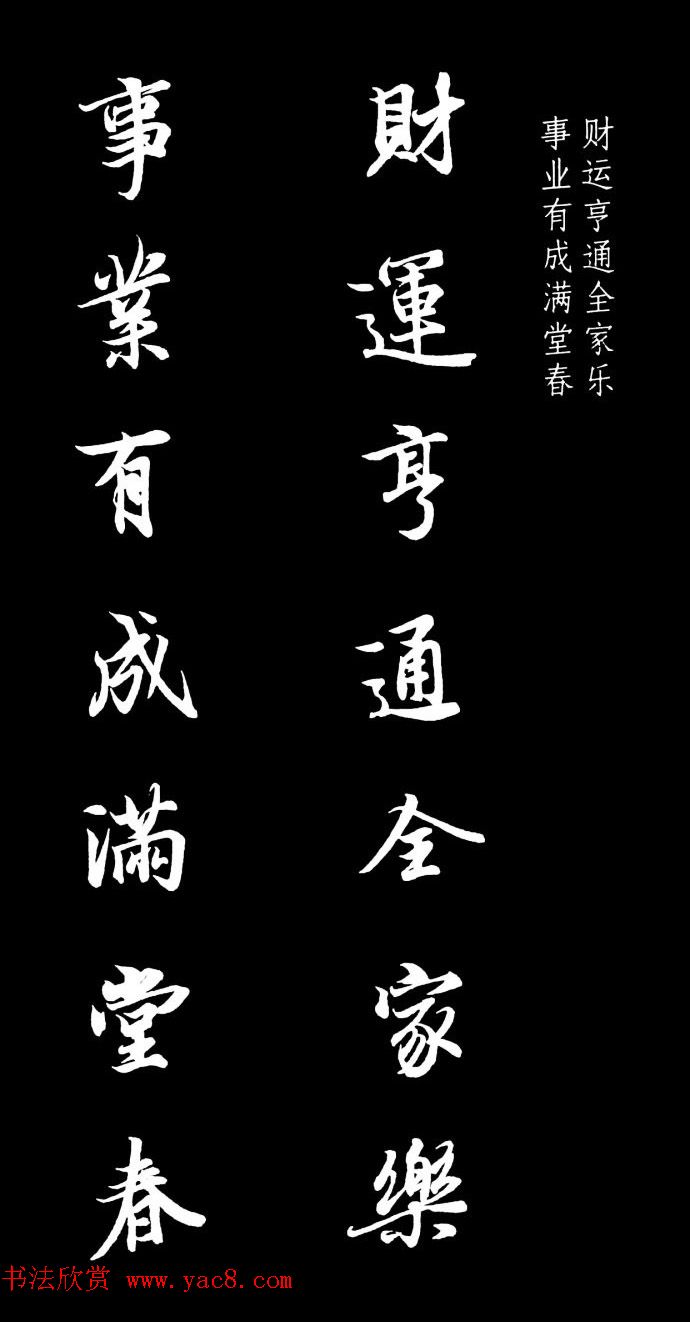 财运亨通全家乐
事业有成满堂春
財運亨通全家樂
事業有成滿堂春
书法欣赏 www.yac8.com